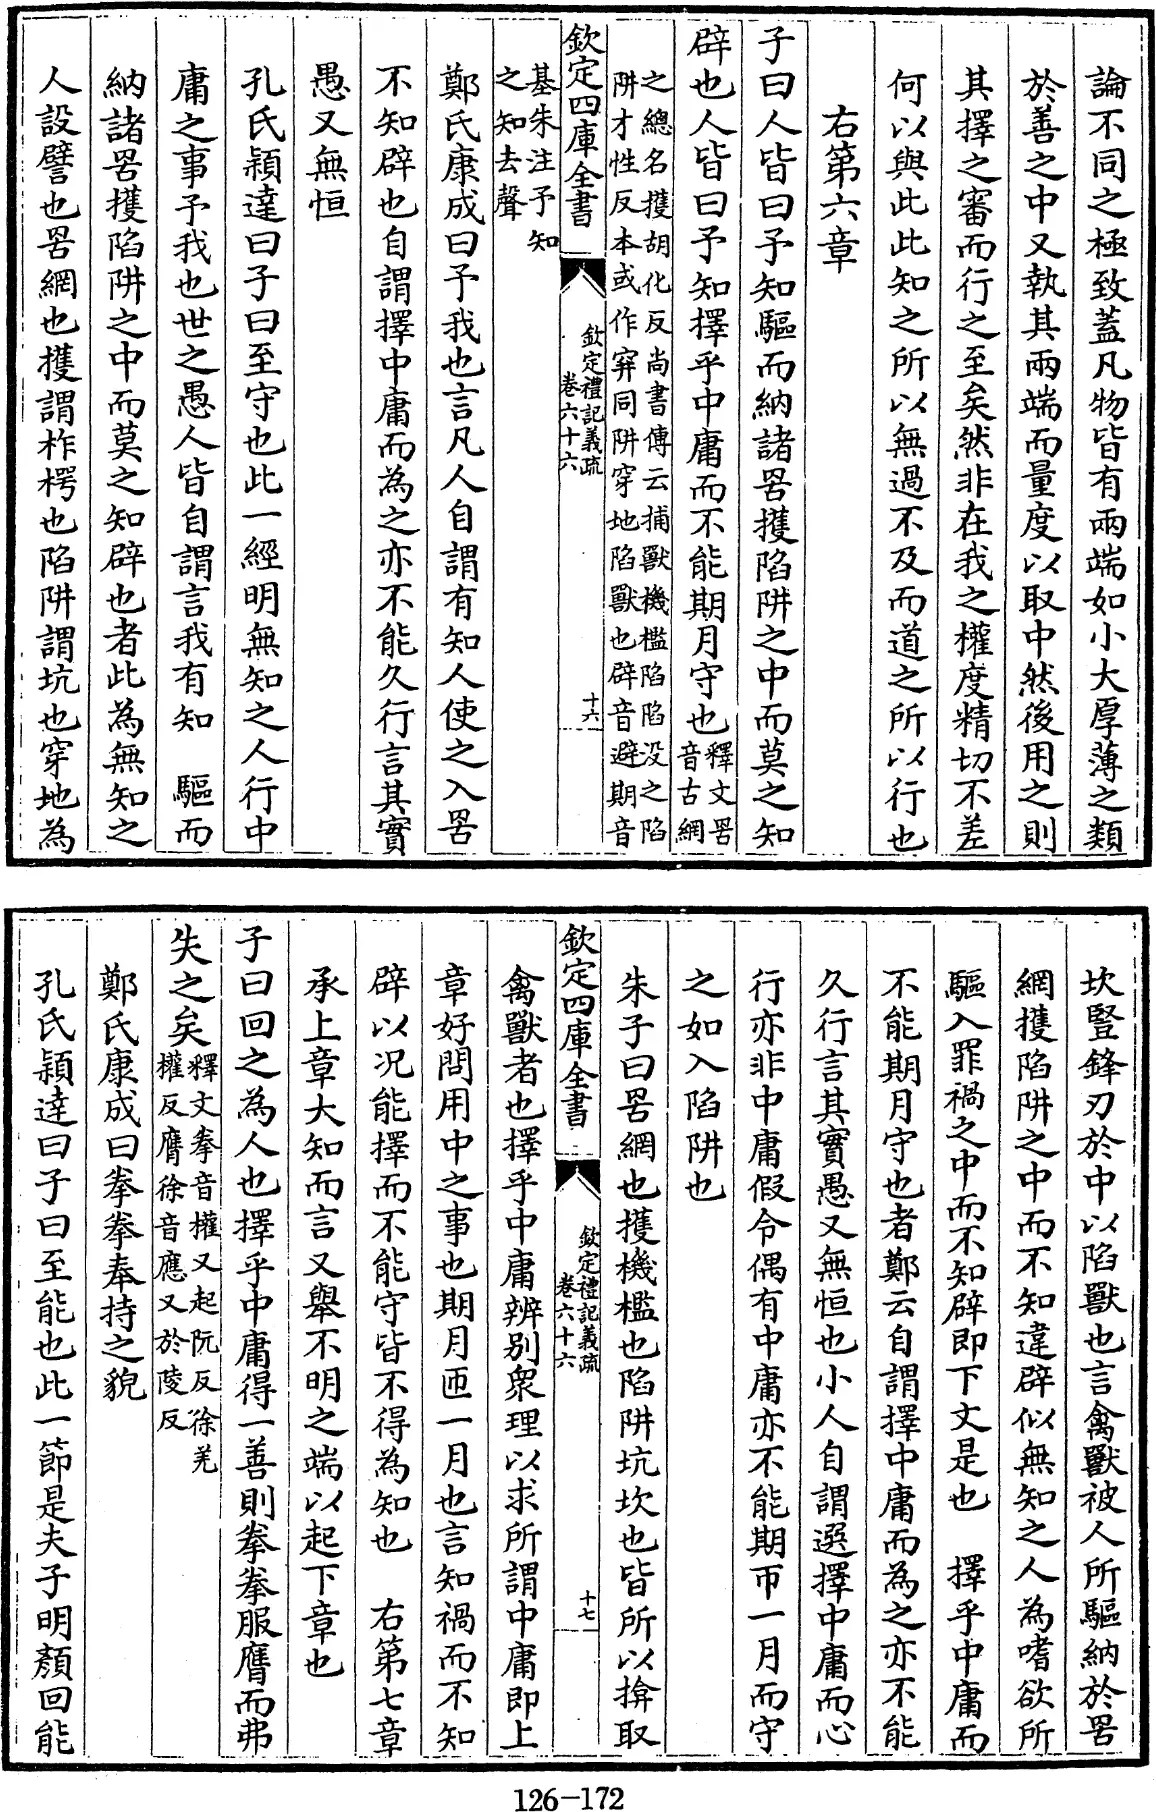 論不同之極致蓋凡物皆有兩端如小大厚薄之類
於善之中又執其兩端而量度以取中然後用之則
其擇之審而行之至矣然非在我之權度精切不差
何以與此此知之所以無過不及而道之所以行也
右第六章
子曰人皆曰予知驅而納諸罟擭陷阱之中而莫之知
辟也人皆曰予知擇乎中庸而不能期月守也釋文罟
音古網
之總名擭胡化反尚書傳云捕獸機檻陷陷没之陷
阱才性反本或作穽同阱穿地陷獸也辟音避期音
欽定四庫全書
欽定禮記義疏
卷六十六
十六
基朱注予知
之知去聲
鄭氏康成曰予我也言凡人自謂有知人使之入罟
不知辟也自謂擇中庸而為之亦不能久行言其實
愚又無恒
孔氏穎達曰子曰至守也此一經明無知之人行中
庸之事予我也世之愚人皆自謂言我有知　驅而
納諸罟擭陷阱之中而莫之知辟也者此為無知之
人設譬也罟網也擭謂柞楞也陷阱謂坑也穿地為
坎豎鋒刃於中以陷獸也言禽獸被人所驅納於罟
網擭陷阱之中而不知違辟似無知之人為嗜欲所
驅入罪禍之中而不知辟即下文是也　擇乎中庸而
不能期月守也者鄭云自謂擇中庸而為之亦不能
久行言其實愚又無恒也小人自謂選擇中庸而心
行亦非中庸假令偶有中庸亦不能期帀一月而守
之如入陷阱也
朱子曰罟網也擭機檻也陷阱坑坎也皆所以揜取
欽定四庫全書
欽定禮記義疏
卷六十六
十七
禽獸者也擇乎中庸辨別衆理以求所謂中庸即上
章好問用中之事也期月匝一月也言知禍而不知
辟以况能擇而不能守皆不得為知也　右第七章
承上章大知而言又舉不明之端以起下章也
子曰回之為人也擇乎中庸得一善則拳拳服膺而弗
失之矣釋文拳音權又起阮反徐羌
權反膺徐音應又於陵反
鄭氏康成曰拳拳奉持之貌
孔氏穎達曰子曰至能也此一節是夫子明顏回能
126-172